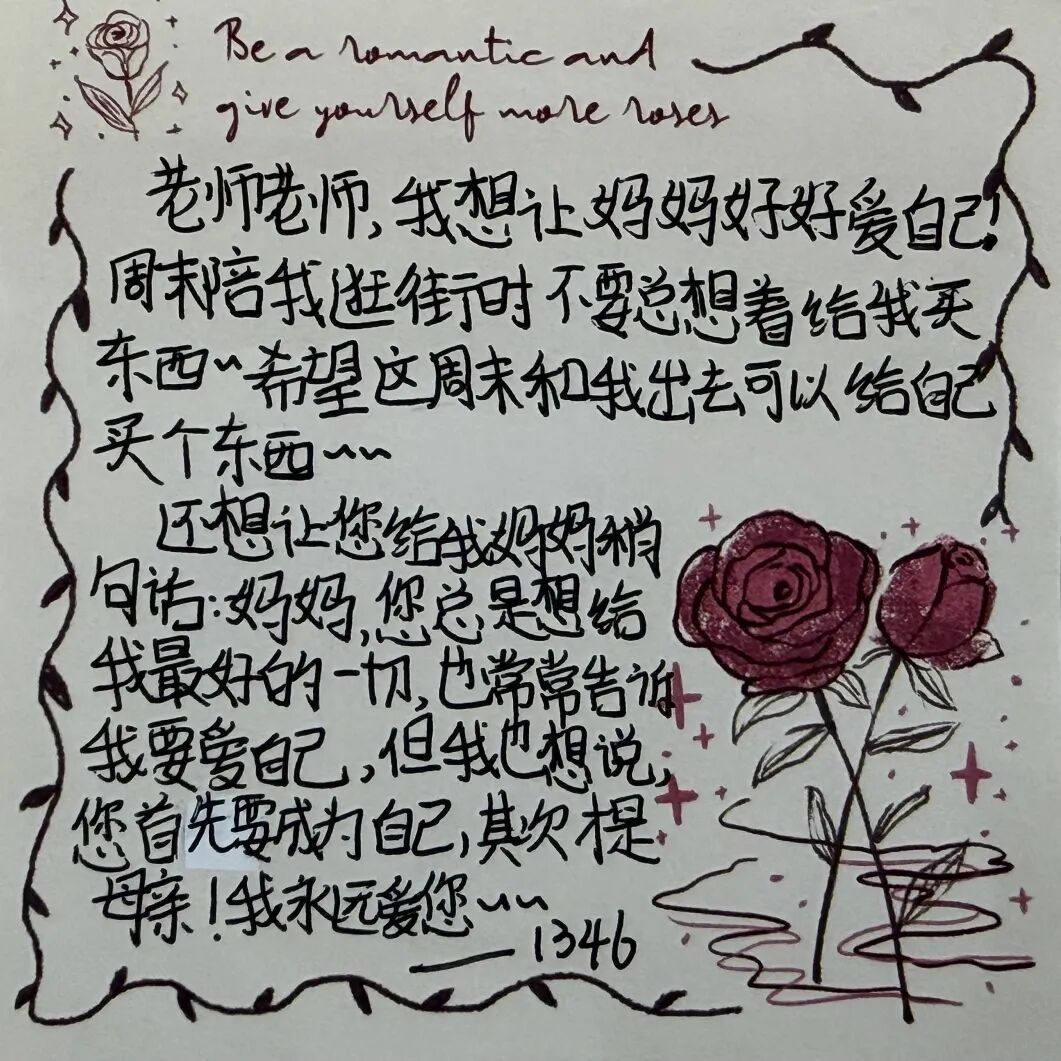 Be a romantic and
give yourself more roses
老师老师,我想让妈妈好好爱自己!
周末陪我逛街时不要总想着给我买
东西~希望这周末和我出去可以给自己
买个东西~~
还想让您给我妈妈稍
句话:妈妈,您总是想给
我最好的一切,也常常告诉
我要爱自己,但我也想说,
您首先要成为自己,其次才是
母亲!我永远爱您~~
——1346